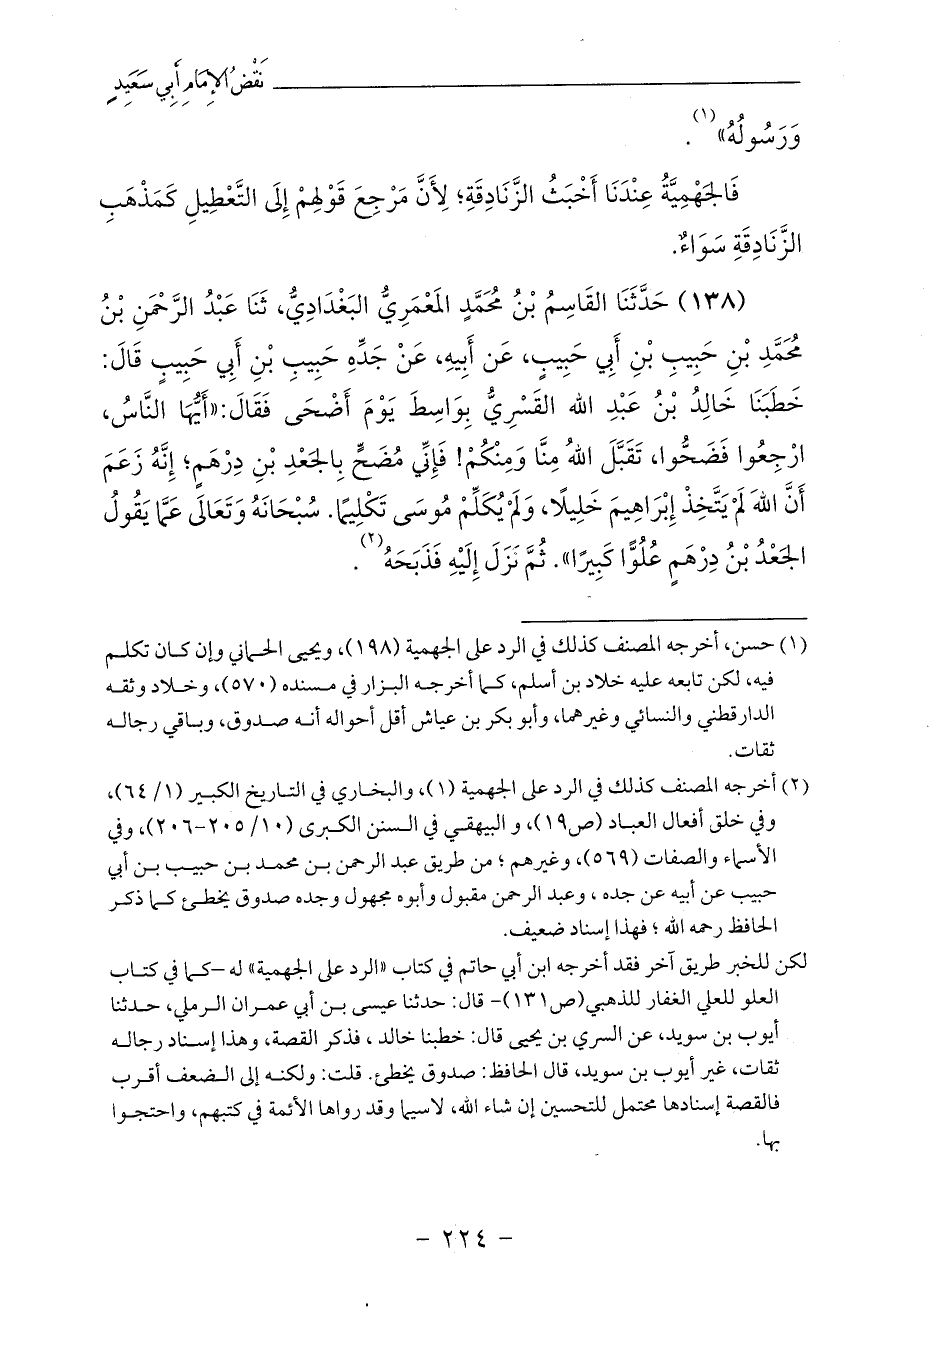 نَقْضُ الإِمَامِ أَبِي سَعِيدٍ
وَرَسُولُهُ»(١).
فَالجَهْمِيَّةُ عِنْدَنَا أَخْبَثُ الزَّنَادِقَةِ؛ لِأَنَّ مَرْجِعَ قَوْلِهِمْ إِلَى التَّعْطِيلِ كَمَذْهَبِ
الزَّنَادِقَةِ سَوَاءٌ.
(١٣٨) حَدَّثَنَا القَاسِمُ بْنُ مُحَمَّدٍ المَعْمَرِيُّ البَغْدَادِيُّ، ثَنَا عَبْدُ الرَّحْمَنِ بْنُ
مُحَمَّدِ بْنِ حَبِيبِ بْنِ أَبِي حَبِيبٍ، عَن أَبِيهِ، عَنْ جَدِّهِ حَبِيبِ بْنِ أَبِي حَبِيبٍ قَالَ:
خَطَبَنَا خَالِدُ بْنُ عَبْدِ الله القَسْرِيُّ بِوَاسِطَ يَوْمَ أَضْحَى فَقَالَ:«أَيُّهَا النَّاسُ،
ارْجِعُوا فَضَحُّوا، تَقَبَّلَ اللهُ مِنَّا وَمِنْكُمْ! فَإِنِّي مُضَحٍّ بِالجَعْدِ بْنِ دِرْهَمٍ؛ إِنَّهُ زَعَمَ
أَنَّ اللهَ لَمْ يَتَّخِذْ إِبْرَاهِيمَ خَلِيلًا، وَلَمْ يُكَلِّمْ مُوسَى تَكْلِيمًا. سُبْحَانَهُ وَتَعَالَى عَمَّا يَقُولُ
الجَعْدُ بْنُ دِرْهَمٍ عُلُوًّا كَبِيرًا». ثُمَّ نَزَلَ إِلَيْهِ فَذَبَحَهُ(٢).
(١) حسن، أخرجه المصنف كذلك في الرد على الجهمية (١٩٨)، ويحيى الحماني وإن كان تكلم
فيه، لكن تابعه عليه خلاد بن أسلم، كما أخرجه البزار في مسنده (٥٧٠)، وخلاد وثقه
الدارقطني والنسائي وغيرهما، وأبو بكر بن عياش أقل أحواله أنه صدوق، وباقي رجاله
ثقات.
(٢) أخرجه المصنف كذلك في الرد على الجهمية (١)، والبخاري في التاريخ الكبير (١/ ٦٤)،
وفي خلق أفعال العباد (ص١٩)، و البيهقي في السنن الكبرى (١٠/ ٢٠٥-٢٠٦)، وفي
الأسماء والصفات (٥٦٩)، وغيرهم ؛ من طريق عبد الرحمن بن محمد بن حبيب بن أبي
حبيب عن أبيه عن جده ، وعبد الرحمن مقبول وأبوه مجهول وجده صدوق يخطئ كما ذكر
الحافظ رحمه الله ؛ فهذا إسناد ضعيف.
لكن للخبر طريق آخر فقد أخرجه ابن أبي حاتم في كتاب «الرد على الجهمية» له –كما في كتاب
العلو للعلي الغفار للذهبي(ص١٣١)– قال: حدثنا عيسى بن أبي عمران الرملي، حدثنا
أيوب بن سويد، عن السري بن يحيى قال: خطبنا خالد ، فذكر القصة، وهذا إسناد رجاله
ثقات، غير أيوب بن سويد، قال الحافظ: صدوق يخطئ. قلت: ولكنه إلى الضعف أقرب
فالقصة إسنادها محتمل للتحسين إن شاء الله، لاسيما وقد رواها الأئمة في كتبهم، واحتجوا
بها.
– ٢٢٤ –